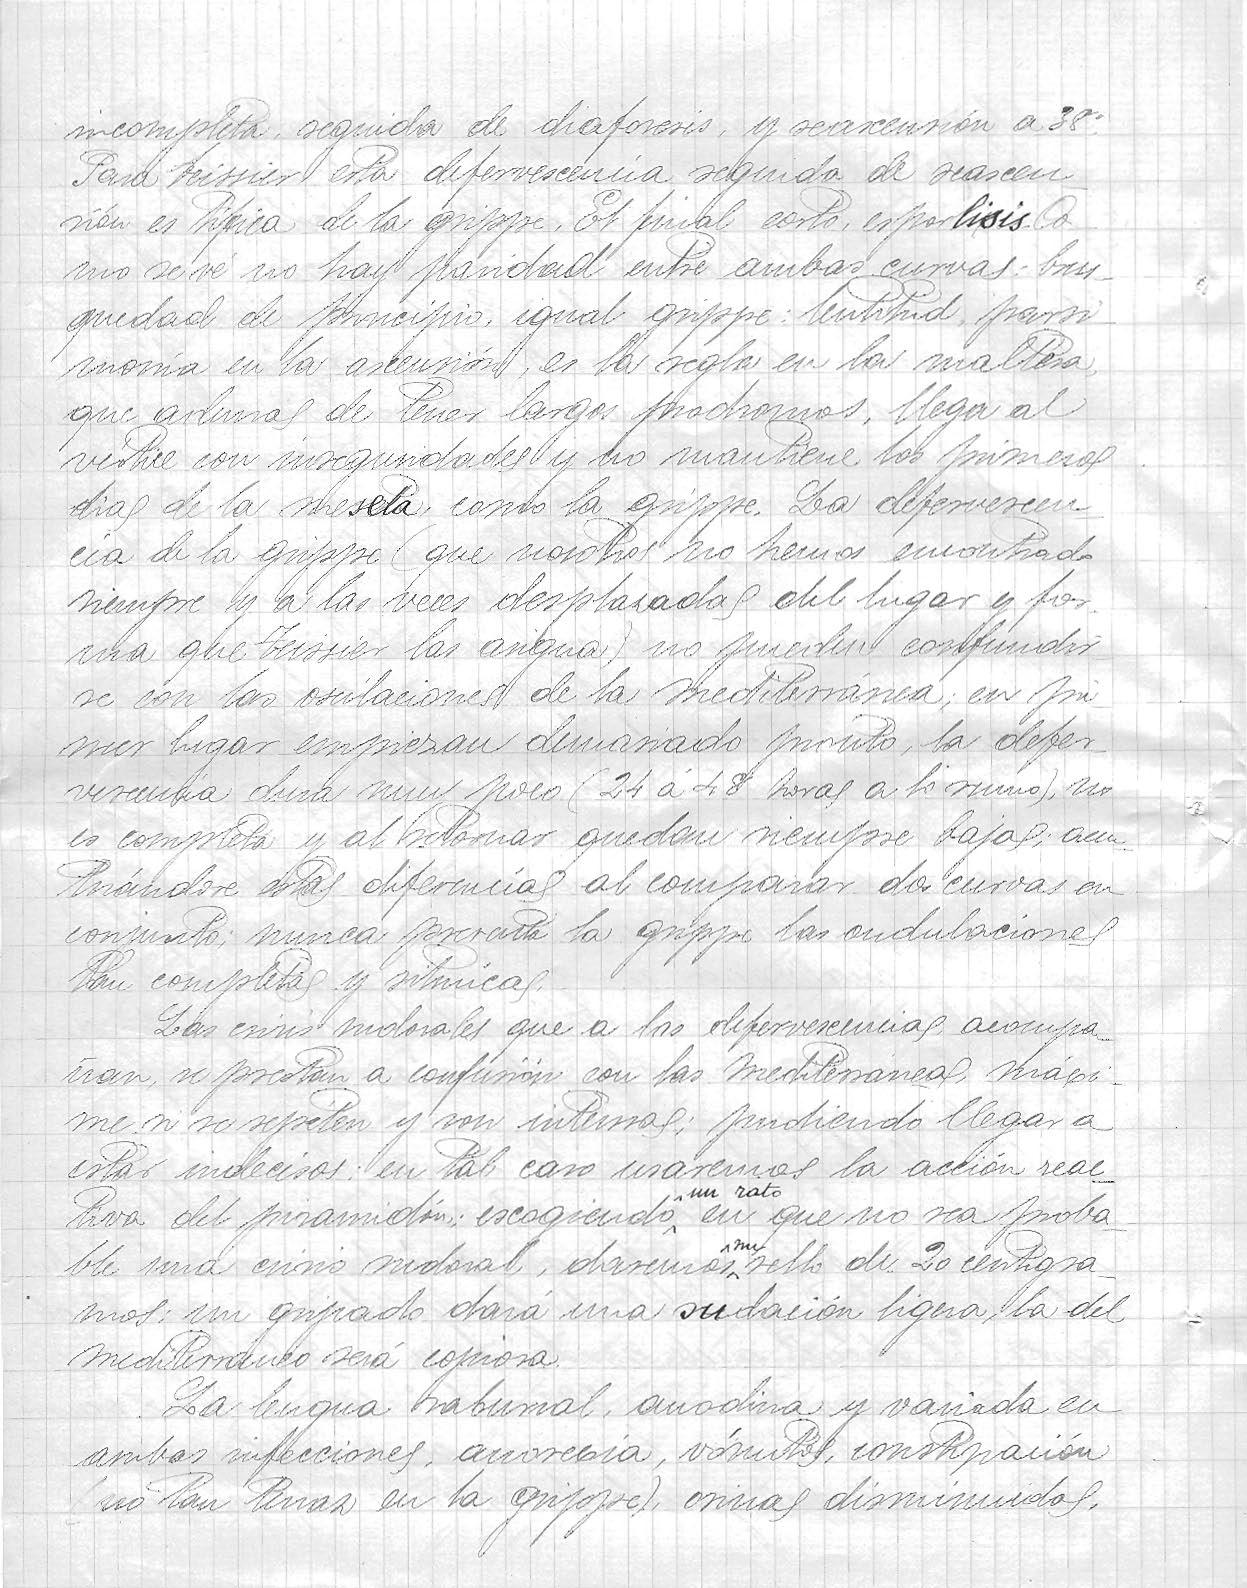 incompleta, seguida de diaforesis, y reascensión a 38º.
Para Teissier esta defervescencia seguida de reascen-
sión es típica de la grippe. El final corto, es por lisis. Co-
mo se vé no hay paridad entre ambas curvas: brus-
quedad de principio, igual grippe: lentitud, parsi-
monia en la ascensión, es la regla en la maltesa,
que ademas de tener largos prodromos, llega al
vertice con inseguridades y no mantiene los primeros
dias de la meseta, como la grippe. La defervescen-
cia de la grippe (que nosotros no hemos encontrado
siempre y a las veces desplazadas del lugar y for-
ma que Teissier las asigna) no pueden confundir-
se con las oscilaciones de la mediterránea; en pri-
mer lugar empiezan demasiado pronto, la defer-
vescencia dura muy poco (24 á 48 horas a lo sumo), no
es completa y al retornar quedan siempre bajas; acen-
tuándose estas diferencias al comparar dos curvas en
conjunto; nunca presenta la grippe las ondulaciones
tan completas y ritmicas.
Las crisis sudorales que a las defervescencias acompa-
ñan, se prestan a confusión con las mediterráneas, máxi-
me si se repiten y son intensas; pudiendo llegar a
estar indecisos: en tal caso usaremos la acción reac-
tiva del piramidón: escogiendo un rato en que no sea proba-
ble una crisis sudoral, daremos un sello de 20 centigra-
mos: un gripado dará una sudación ligera, la del
mediterraneo será copiosa.
La lengua saburral, anodina y variada en
ambas infecciones, anorexia, vómitos, constipación
(no tan tenaz en la grippe), orinas disminuidas,